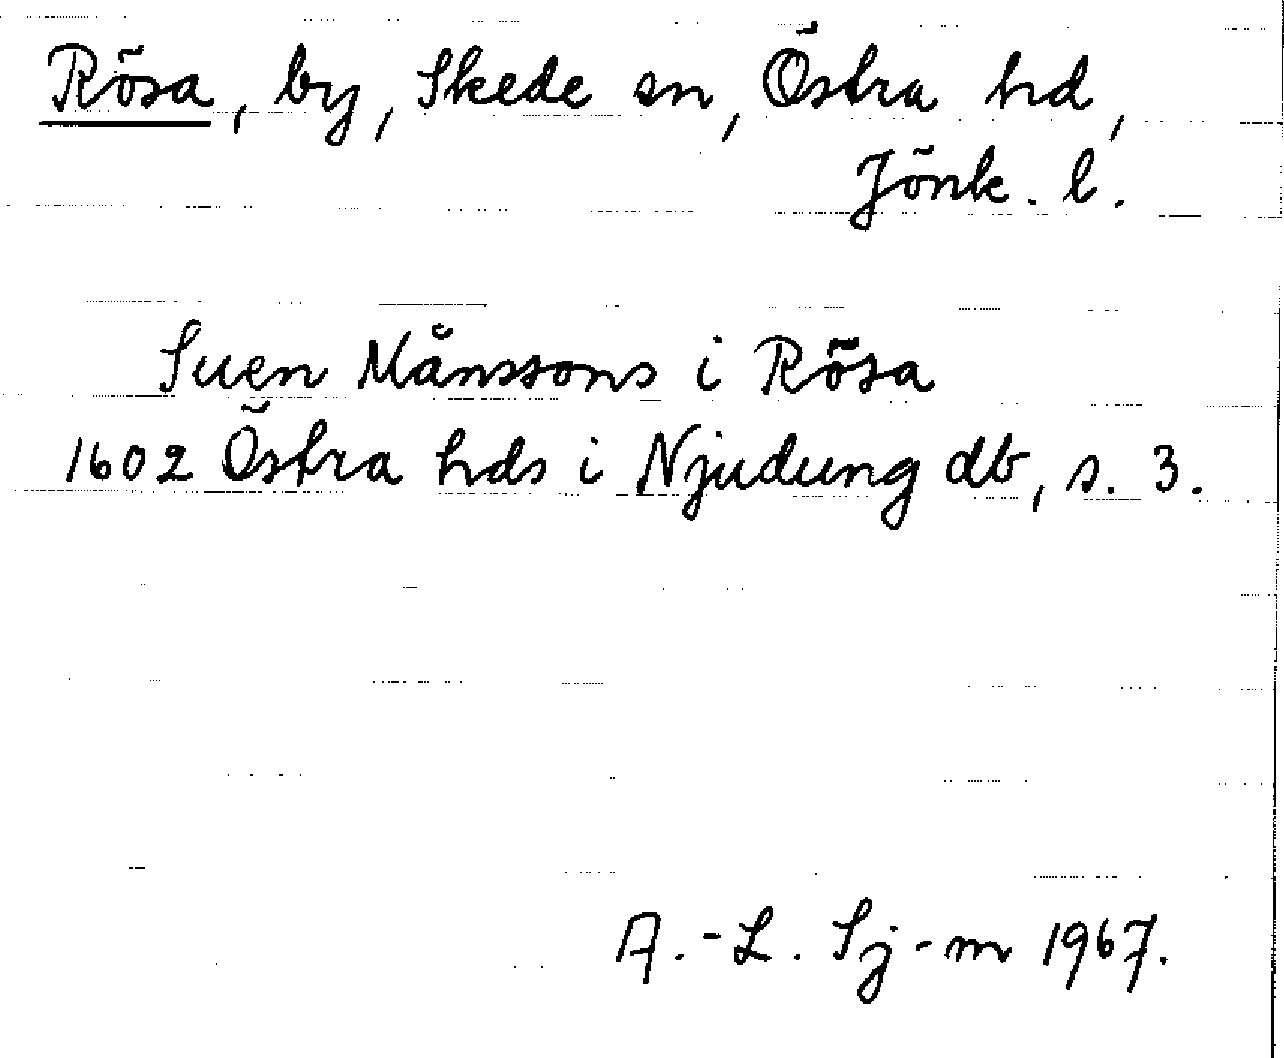 Rösa, by, Skede sn, Östra hd,
Jönk. l.
Suen Månssons i Rösa
1602 Östra hds i Njudung db, s. 3.
A.-L. Sj-m 1967.